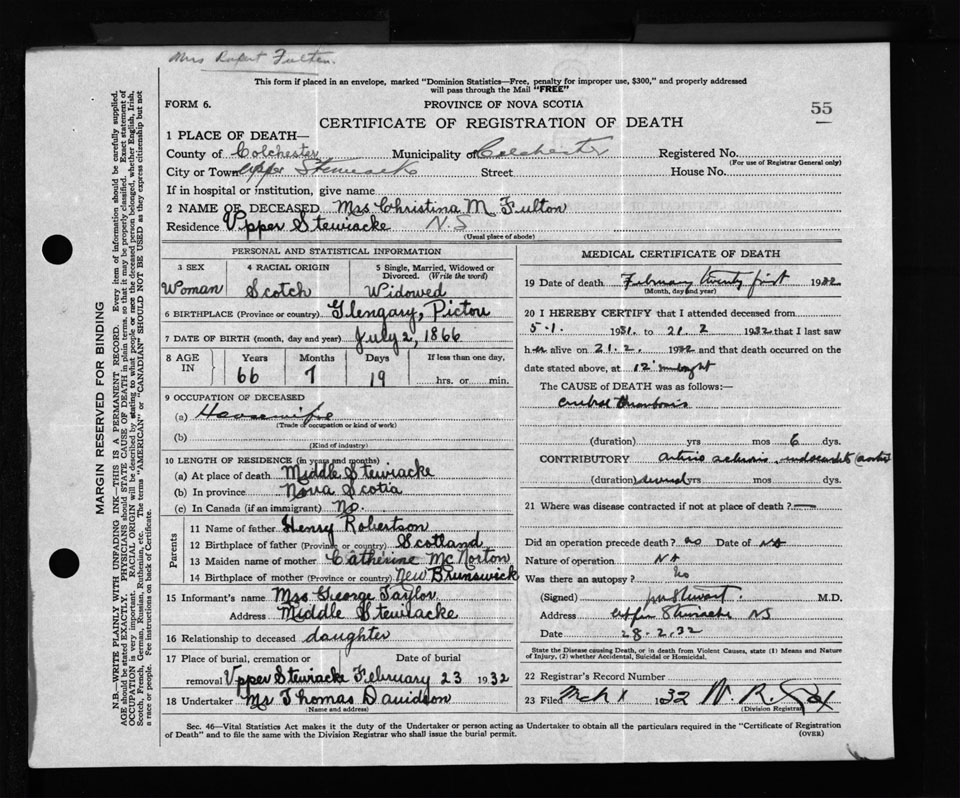 Mrs Rupert Fulton.
This form if placed in an envelope, marked "Dominion Statistics—Free, penalty for improper use, $300," and properly addressed
will pass through the Mail "FREE"
FORM 6.
PROVINCE OF NOVA SCOTIA
55
CERTIFICATE OF REGISTRATION OF DEATH
1 PLACE OF DEATH—
County of Colchester Municipality of Colchester Registered No.
(For use of Registrar General only)
City or Town Upper Stewiacke Street House No.
If in hospital or institution, give name
2 NAME OF DECEASED Mrs Christina M. Fulton
Residence Upper Stewiacke N.S
(Usual place of abode)
PERSONAL AND STATISTICAL INFORMATION
3 SEX 4 RACIAL ORIGIN 5 Single, Married, Widowed or
Divorced. (Write the word)
Woman Scotch Widowed
6 BIRTHPLACE (Province or country) Glengary, Pictou
7 DATE OF BIRTH (month, day and year) July 2, 1866
8 AGE IN Years Months Days If less than one day,
66 7 19 hrs. or min.
9 OCCUPATION OF DECEASED
(a) Housewife
(Trade of occupation or kind of work)
(b)
(Kind of industry)
10 LENGTH OF RESIDENCE (in years and months)
(a) At place of death Middle Stewiacke
(b) In province Nova Scotia
(c) In Canada (if an immigrant) No.
Parents
11 Name of father Henry Robertson
12 Birthplace of father (Province or country) Scotland
13 Maiden name of mother Catherine McNorton
14 Birthplace of mother (Province or country) New Brunswick
15 Informant's name Mrs George Taylor
Address Middle Stewiacke
16 Relationship to deceased daughter
17 Place of burial, cremation or Date of burial
removal Upper Stewiacke February 23 1932
18 Undertaker Mr Thomas Davidson
(Name and address)
MEDICAL CERTIFICATE OF DEATH
19 Date of death February twenty first 1932
(Month, day and year)
20 I HEREBY CERTIFY that I attended deceased from
5.1. 1931 to 21.2 1932 that I last saw
her alive on 21.2. 1932 and that death occurred on the
date stated above, at 12 midnight
The CAUSE of DEATH was as follows:—
cerebral thrombosis
(duration) yrs mos 6 dys.
CONTRIBUTORY arterio sclerosis, endocarditis (aortic)
(duration) several yrs mos dys.
21 Where was disease contracted if not at place of death ? —
Did an operation precede death ? no Date of NA
Nature of operation NA
Was there an autopsy ? No
(Signed) Stewart M.D.
Address Upper Stewiacke NS
Date 28.2.32
State the Disease causing Death, or in death from Violent Causes, state (1) Means and Nature
of Injury, (2) whether Accidental, Suicidal or Homicidal.
22 Registrar's Record Number
23 Filed Mch 1 1932 W. R. Cox
(Division Registrar)
Sec. 46—Vital Statistics Act makes it the duty of the Undertaker or person acting as Undertaker to obtain all the particulars required in the "Certificate of Registration
of Death" and to file the same with the Division Registrar who shall issue the burial permit.
(OVER)
MARGIN RESERVED FOR BINDING
N.B.—WRITE PLAINLY WITH UNFADING INK—THIS IS A PERMANENT RECORD. Every item of information should be carefully supplied.
AGE should be stated EXACTLY. PHYSICIANS should STATE CAUSE OF DEATH in plain terms, so that it may be properly classified. Exact statement of
OCCUPATION is very important. RACIAL ORIGIN will be described by stating to what people or race the deceased person belonged, whether English, Irish,
Scotch, French, German, Russian, Ruthenian, etc. The terms "AMERICAN" or "CANADIAN" SHOULD NOT BE USED as they express citizenship but not
a race or people. Fee instructions on back of Certificate.